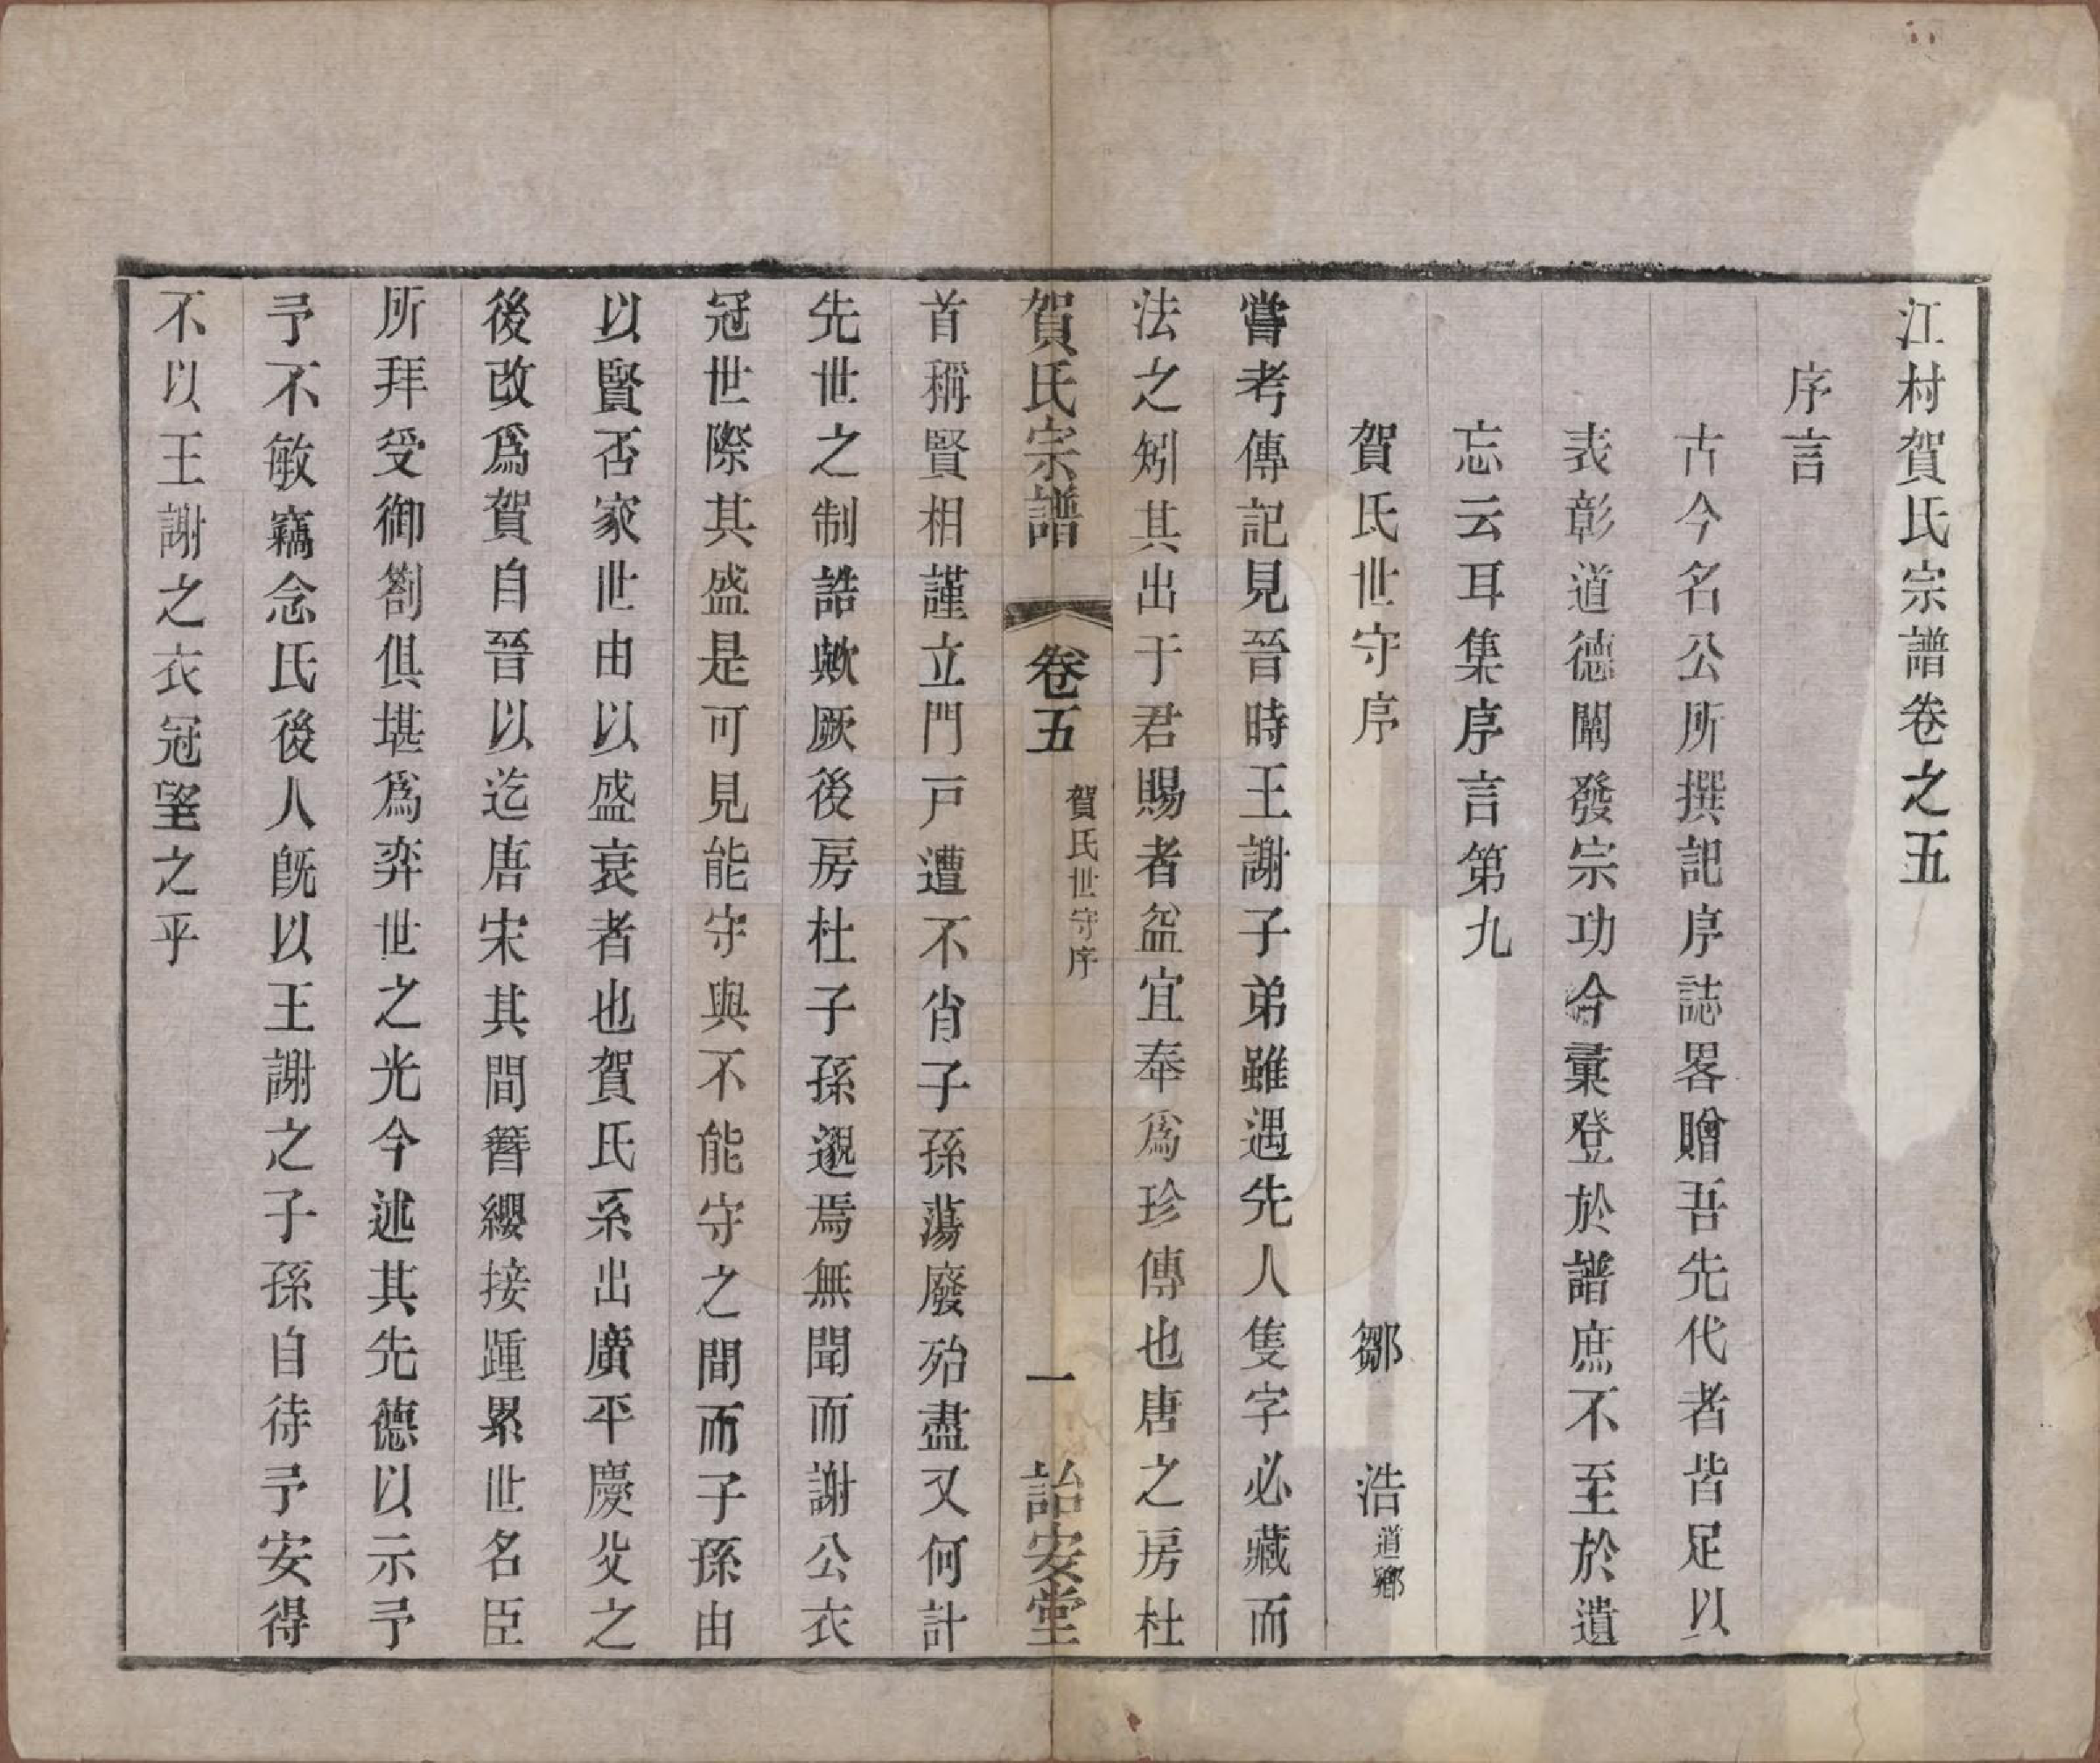 江村賀氏宗譜卷之五
序言
古今名公所撰記序誌畧贈吾先代者皆足以
表彰道德闡發宗功今彙登於譜庶不至於遺
忘云耳集序言第九
賀氏世守序 鄒浩道鄉
嘗考傳記見晉時王謝子弟雖遇先人隻字必藏而
法之矧其出于君賜者盆宜奉爲珍傳也唐之房杜
賀氏宗譜 卷五 賀氏世守序 一 詒安堂
首稱賢相謹立門戸遭不肖子孫蕩廢殆盡又何計
先世之制誥歟厥後房杜子孫邈焉無聞而謝公衣
冠世際其盛是可見能守與不能守之間而子孫由
以賢否家世由以盛衰者也賀氏系出廣平慶父之
後改爲賀自晉以迄唐宋其間簪纓接踵累世名臣
所拜受御劄俱堪爲弈世之光今述其先德以示予
予不敏竊念氏後人旣以王謝之子孫自待予安得
不以王謝之衣冠望之乎